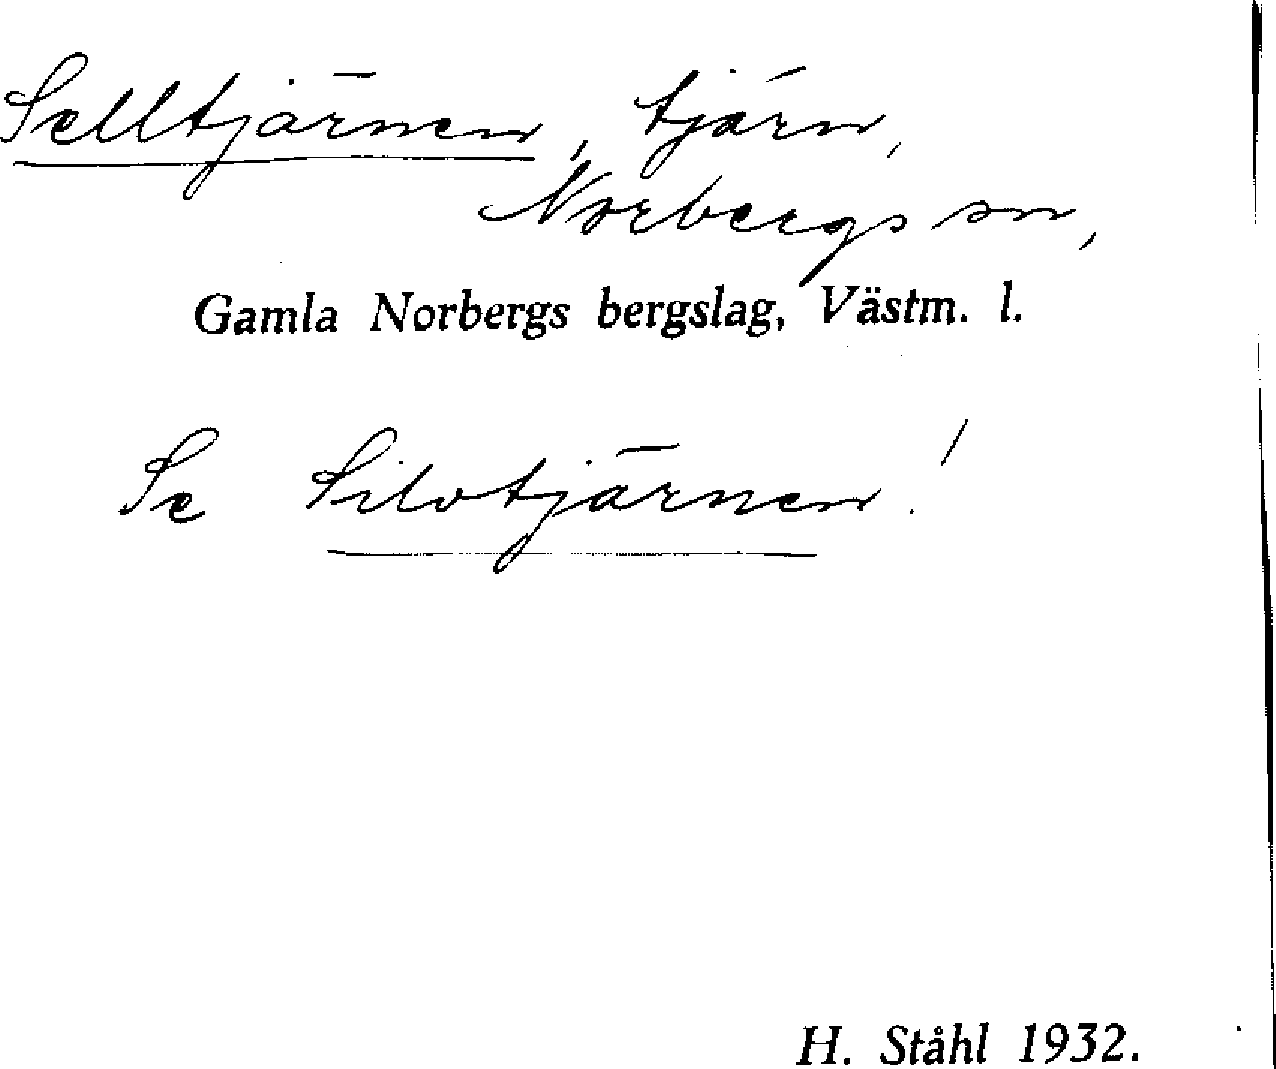 Selltjärnen, tjärn,
Norbergs sn,
Gamla Norbergs bergslag, Västm. l.
Se Silvtjärnen!
H. Ståhl 1932.